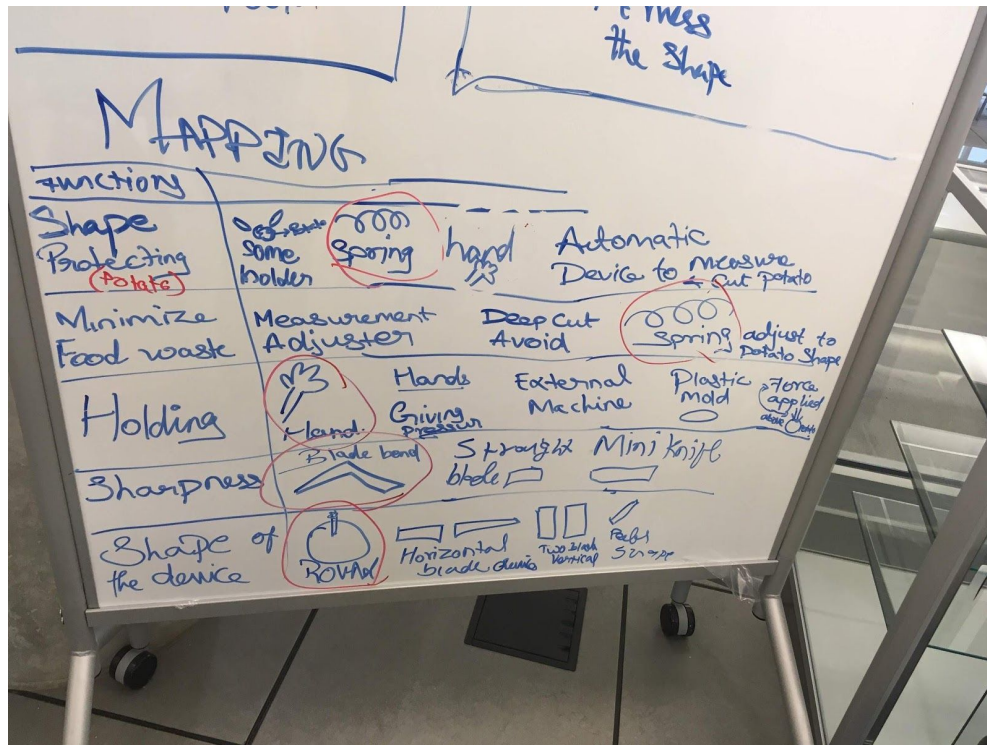 ness
the shape
MAPPING
Functions
Shape
Protecting
(Potato)
some
holder
Spring
hand
Automatic
Device to Measure
& Cut potato
Minimize
Food waste
Measurement
Adjuster
Deep Cut
Avoid
Spring adjust to
Potato shape
Holding
Hand
Hands
Giving
External
Machine
Plastic
mold
Force
applied
above
Sharpness
Blade bend
blade
Mini Knife
Shape of
the device
Horizontal
blade device
Two blade
Vertical